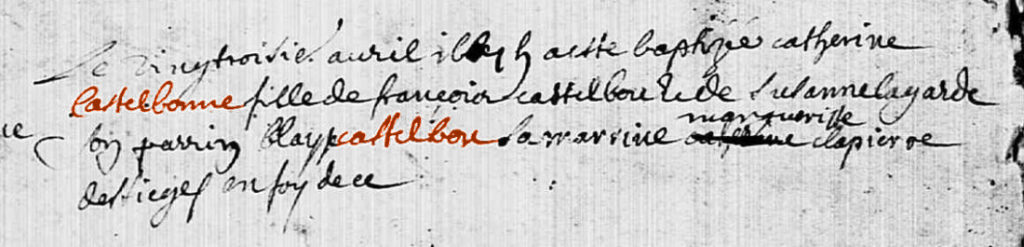 Le vingtroisie avril a este baptisée catherine
Castelbonne fille de françoir castelbou & de Susanne lagarde
ne son parrin Blaye castelbou sa marrine margueritte clapiere
de en foy de ce